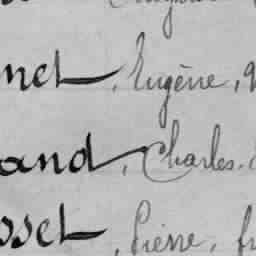 net, Eugène,
and, Charles.
sset, Pierre, fr